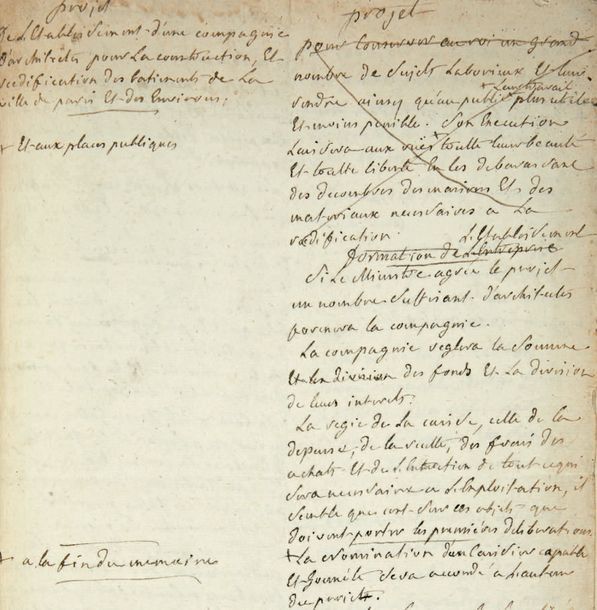 projet
De L'Etablissement d'une compagnie
d'architectes pour La construction, Et
reedification des batiments de La
ville de paris Et des Environs;
+ Et aux places publiques
+ a la fin du memoire
projet
pour conserver au roi un grand
nombre de sujets Laborieux Et leur
rendre ainsy qu'au public + Leur travail plus utile
Et moins penible. Son Execution
Laissera aux rües toutte leur beauté
Et toutte liberté En les debarassant
des decombres des maisons Et des
materiaux necessaires a La
reedification.
formation de L'Entreprise L'Etablissement
Si Le Ministre agrée le projet
un nombre suffisant d'architectes
formera la compagnie.
La compagnie reglera la Somme
Et la division des fonds Et La division
de leurs interets.
La regie de La caisse, celle de la
depense, de la recette, des frais des
achats Et de L'Entretien de tout ce qui
sera necessaire a L'Exploitation, il
semble que c'est sur ces objets que
doivent porter les premieres deliberations.
+ La nomination d'un Caissier capable
Et honnête sera accordé a L'auteur
du projet.